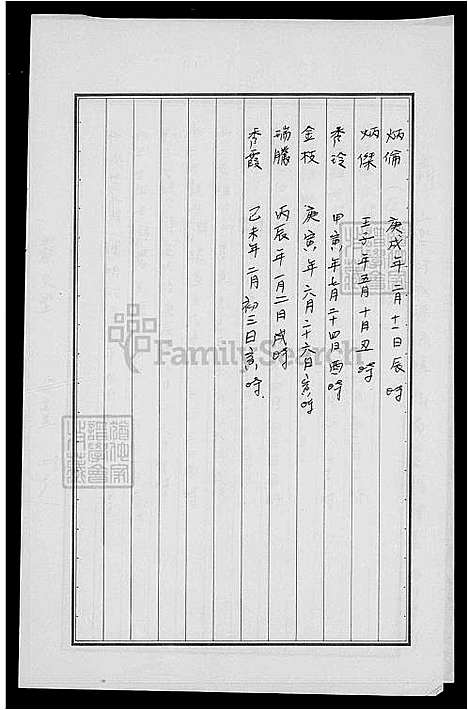 炳倫 庚戌年二月十一日辰時
炳傑 壬子年五月十日丑時
秀玲 甲寅年七月二十四日酉時
金枝 庚寅年六月二十六日寅時
瑞騰 丙辰年一月二日戌時
秀霞 己未年二月初三日亥時
FamilySearch